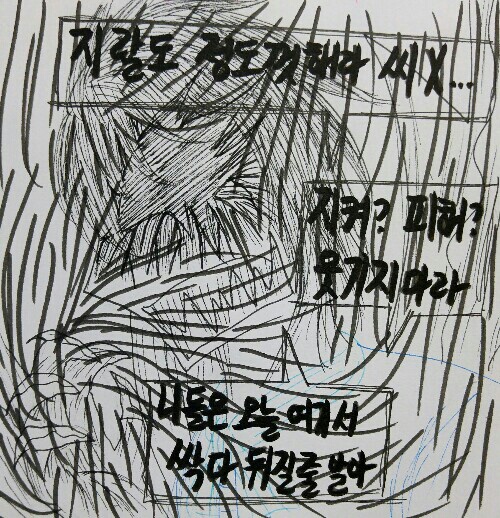 지랄도 정도껏해라 씨X...
지켜? 피해?
웃기지마라
니들은 오늘 여기서
싹다 뒤질줄알아